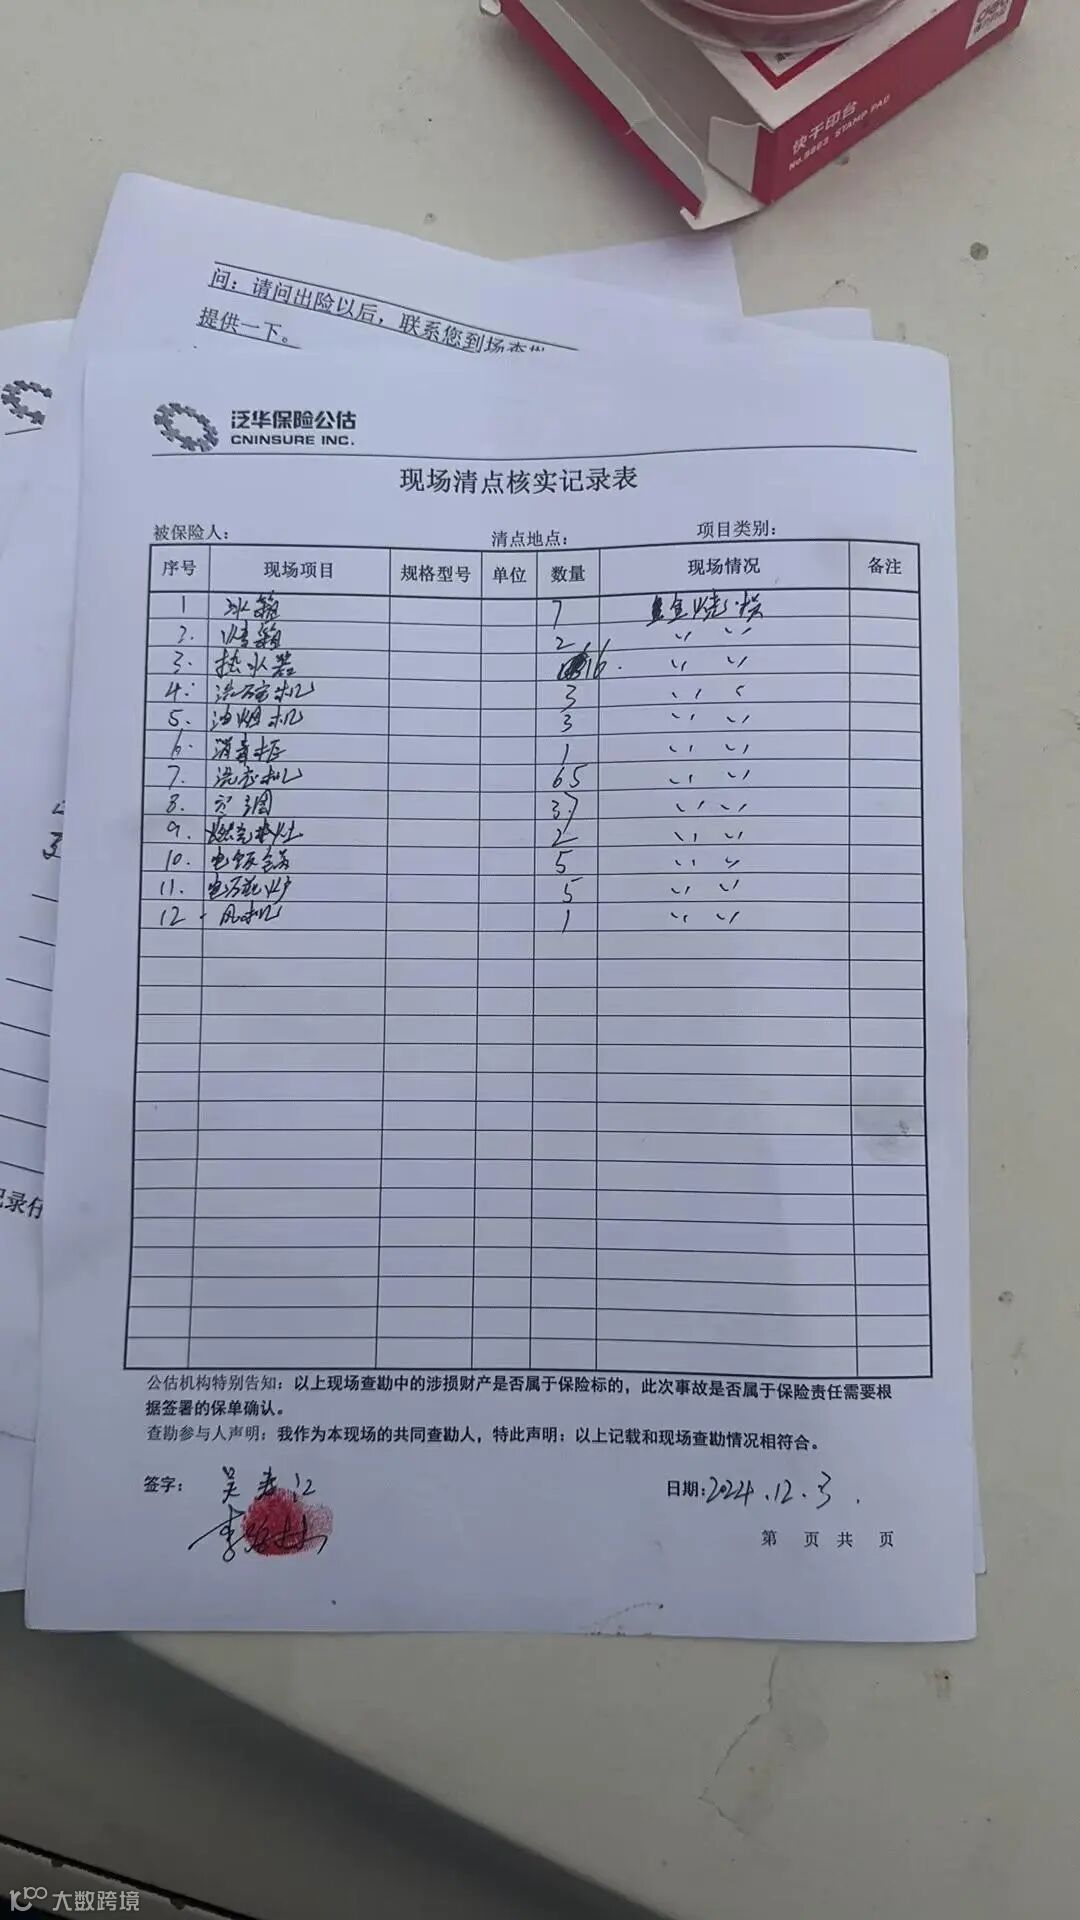 快干印台
No.9863 STAMP PAD
问：请问出险以后，联系您到场查勘
提供一下。
泛华保险公估
CNINSURE INC.
现场清点核实记录表
被保险人： 清点地点： 项目类别：
序号 现场项目 规格型号 单位 数量 现场情况 备注
1 冰箱 7 全烧损
2. 烤箱 2 〃 〃
3. 热水器 16. 〃 〃
4. 洗碗机 3 〃 〃
5. 油烟机 3 〃 〃
6. 消毒柜 1 〃 〃
7. 洗衣机 65 〃 〃
8. 空调 37 〃 〃
9. 燃气灶 2 〃 〃
10. 电饭锅 5 〃 〃
11. 电磁炉 5 〃 〃
12. 风机 1 〃 〃
公估机构特别告知：以上现场查勘中的涉损财产是否属于保险标的，此次事故是否属于保险责任需要根
据签署的保单确认。
查勘参与人声明：我作为本现场的共同查勘人，特此声明：以上记载和现场查勘情况相符合。
签字： 日期：2024.12.3.
第 页 共 页
记录仔
大数跨境